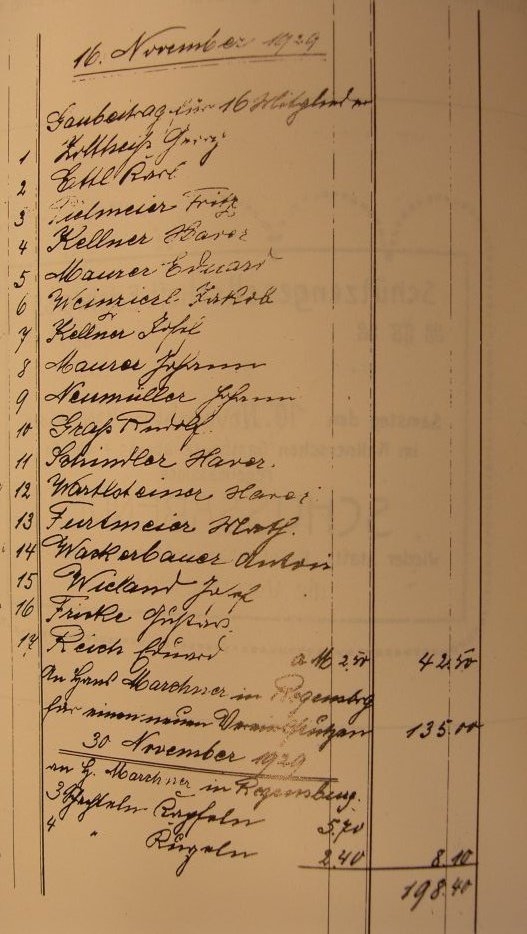 16. November 1929
Gaubeitrag für 16 Mitglieder
1 Georg
2 Ettl Karl
3 Fritz
4 Kellner Xaver
5 Maurer Eduard
6 Weinzierl Jakob
7 Kellner Josef
8 Maurer Johann
9 Neumüller Johann
10 Graß Rudolf
11 Schindler Xaver.
12 Xaver
13 Furtmeier Math.
14 Wackerbauer Anton
15 Wieland Josef
16 Fricke Gustav
17 Reich Eduard a M 2.50 42.50
An Hans Marchner in Regensbrg
für einen neuen Vereinsstutzen 135.00
30 November 1929
an H. Marchner in Regensburg.
3 Schachteln Kapseln 5.70
4 " Kugeln 2.40 8.10
198.40